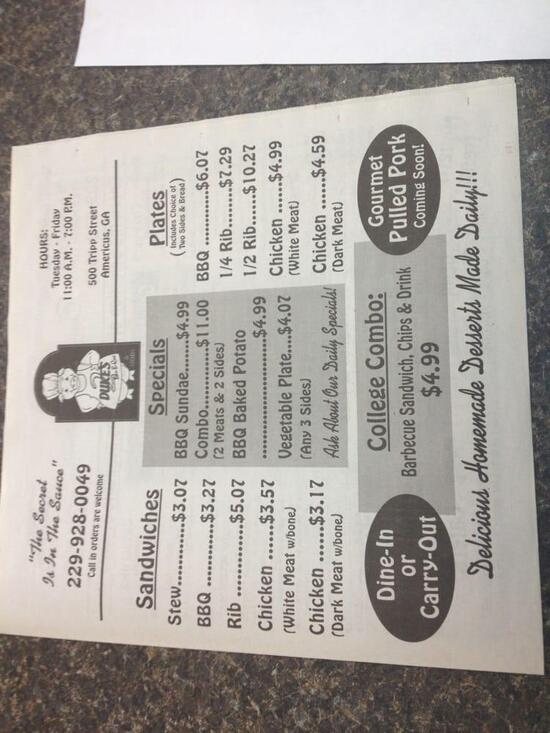 "The Secret
Is In The Sauce"
229-928-0049
Call in orders are welcome
DUKE'S
HOURS:
Tuesday - Friday
11:00 A.M. - 7:00 P.M.
500 Tripp Street
Americus, GA
Sandwiches
Stew..............$3.07
BBQ ..............$3.27
Rib ..............$5.07
Chicken ......$3.57
(White Meat w/bone)
Chicken ......$3.17
(Dark Meat w/bone)
Specials
BBQ Sundae.......$4.99
Combo............$11.00
(2 Meats & 2 Sides)
BBQ Baked Potato
........................$4.99
Vegetable Plate....$4.07
(Any 3 Sides)
Ask About Our Daily Specials!
Plates
( Includes Choice of )
( Two Sides & Bread )
BBQ ..............$6.07
1/4 Rib.........$7.29
1/2 Rib......$10.27
Chicken ......$4.99
(White Meat)
Chicken ......$4.59
(Dark Meat)
Dine-In
or
Carry-Out
College Combo:
Barbecue Sandwich, Chips & Drink
$4.99
Gourmet
Pulled Pork
Coming Soon!
Delicious Homemade Desserts Made Daily!!!